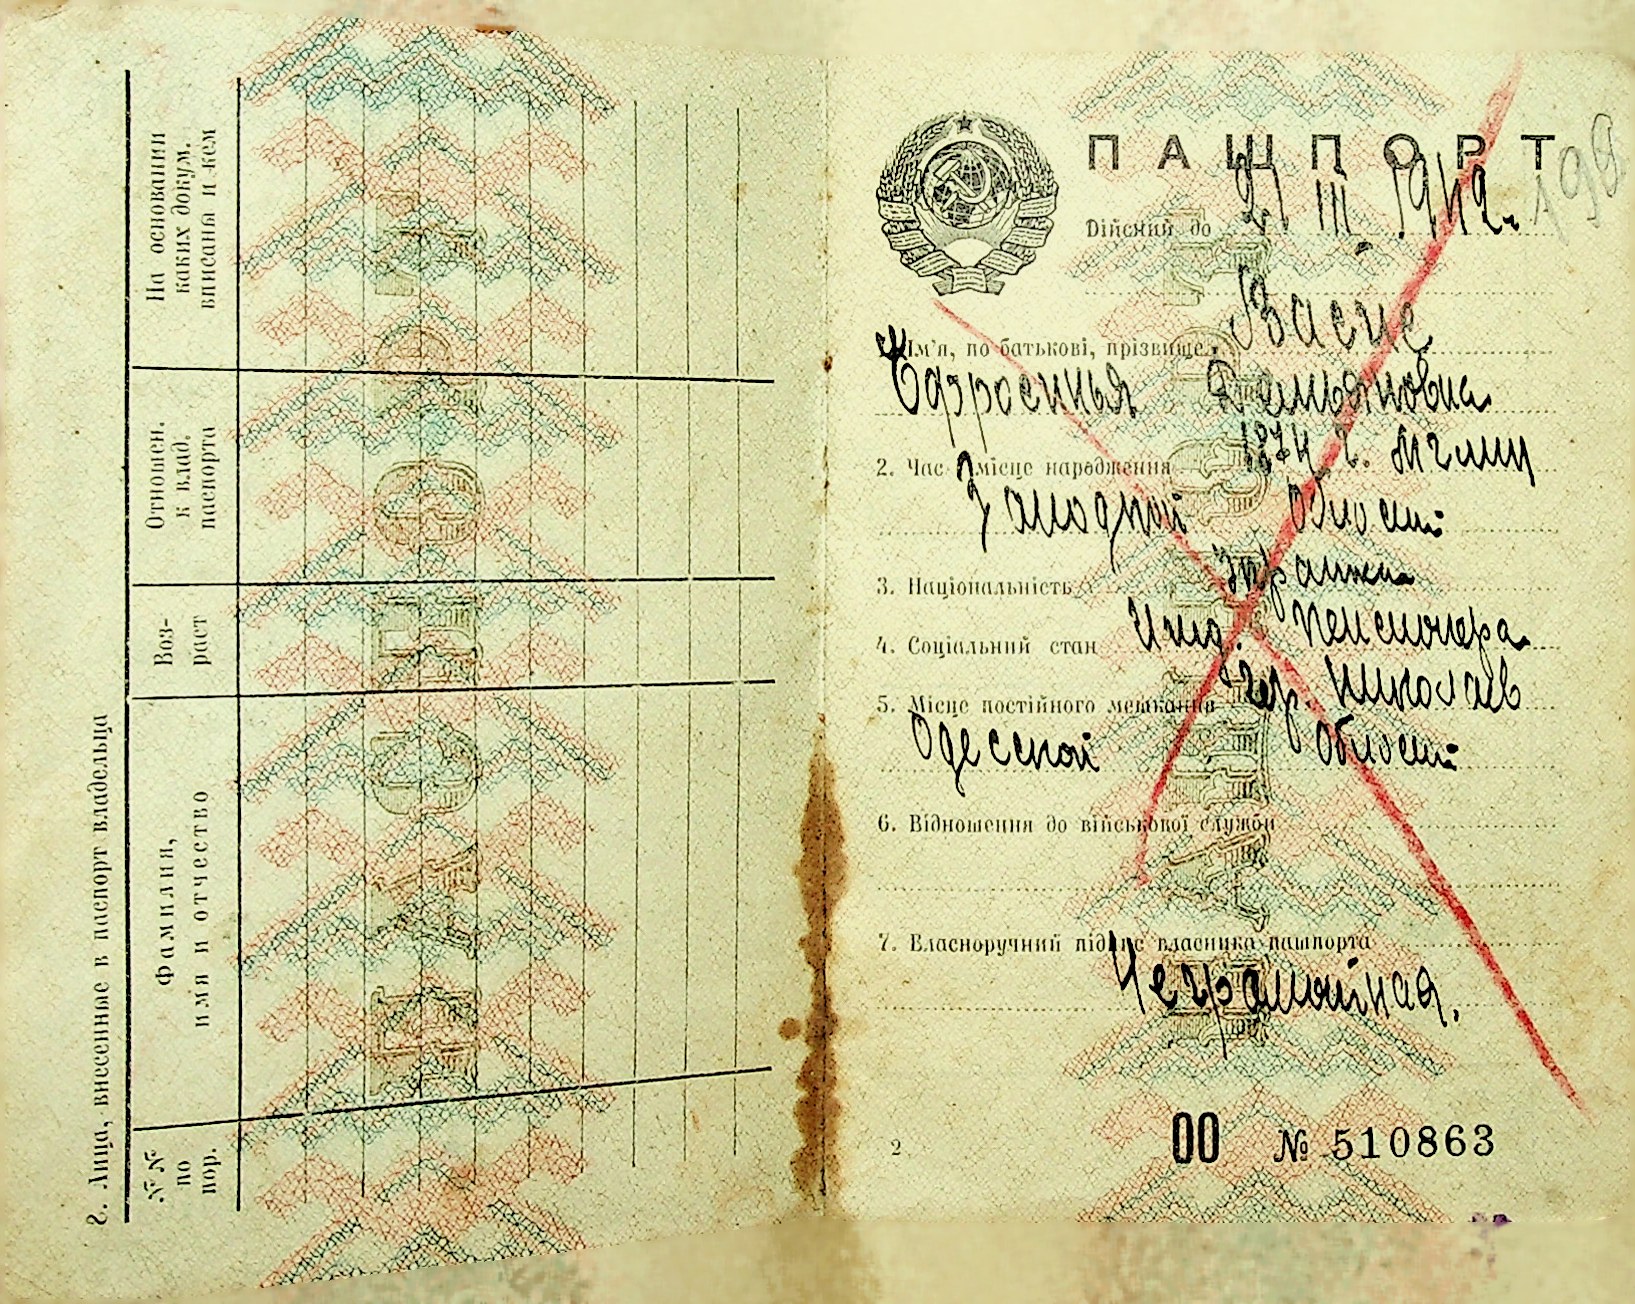 2. Лица, внесенные в паспорт владельца
№№
по
пор.
Фамилия,
имя и отчество
Воз-
раст
Отношен.
к влад.
паспорта
На основании
каких докум.
вписана и кем
ПАСПОРТ
ПАШПОРТ
Дійсний до 21 III 1942.
198
1. Ім'я, по батькові, прізвище
Ефросинья Демьяновна
2. Час і місце народження 1874 г. Мглин
Западной Области
3. Національність
4. Соціальний стан Ижд. Пенсионера
5. Місце постійного мешкання гор. Николаев
Одесской Области
6. Відношення до військової служби
7. Власноручний підпис власника пашпорта
Неграмотная.
ПАСПОРТ
2
00 № 510863